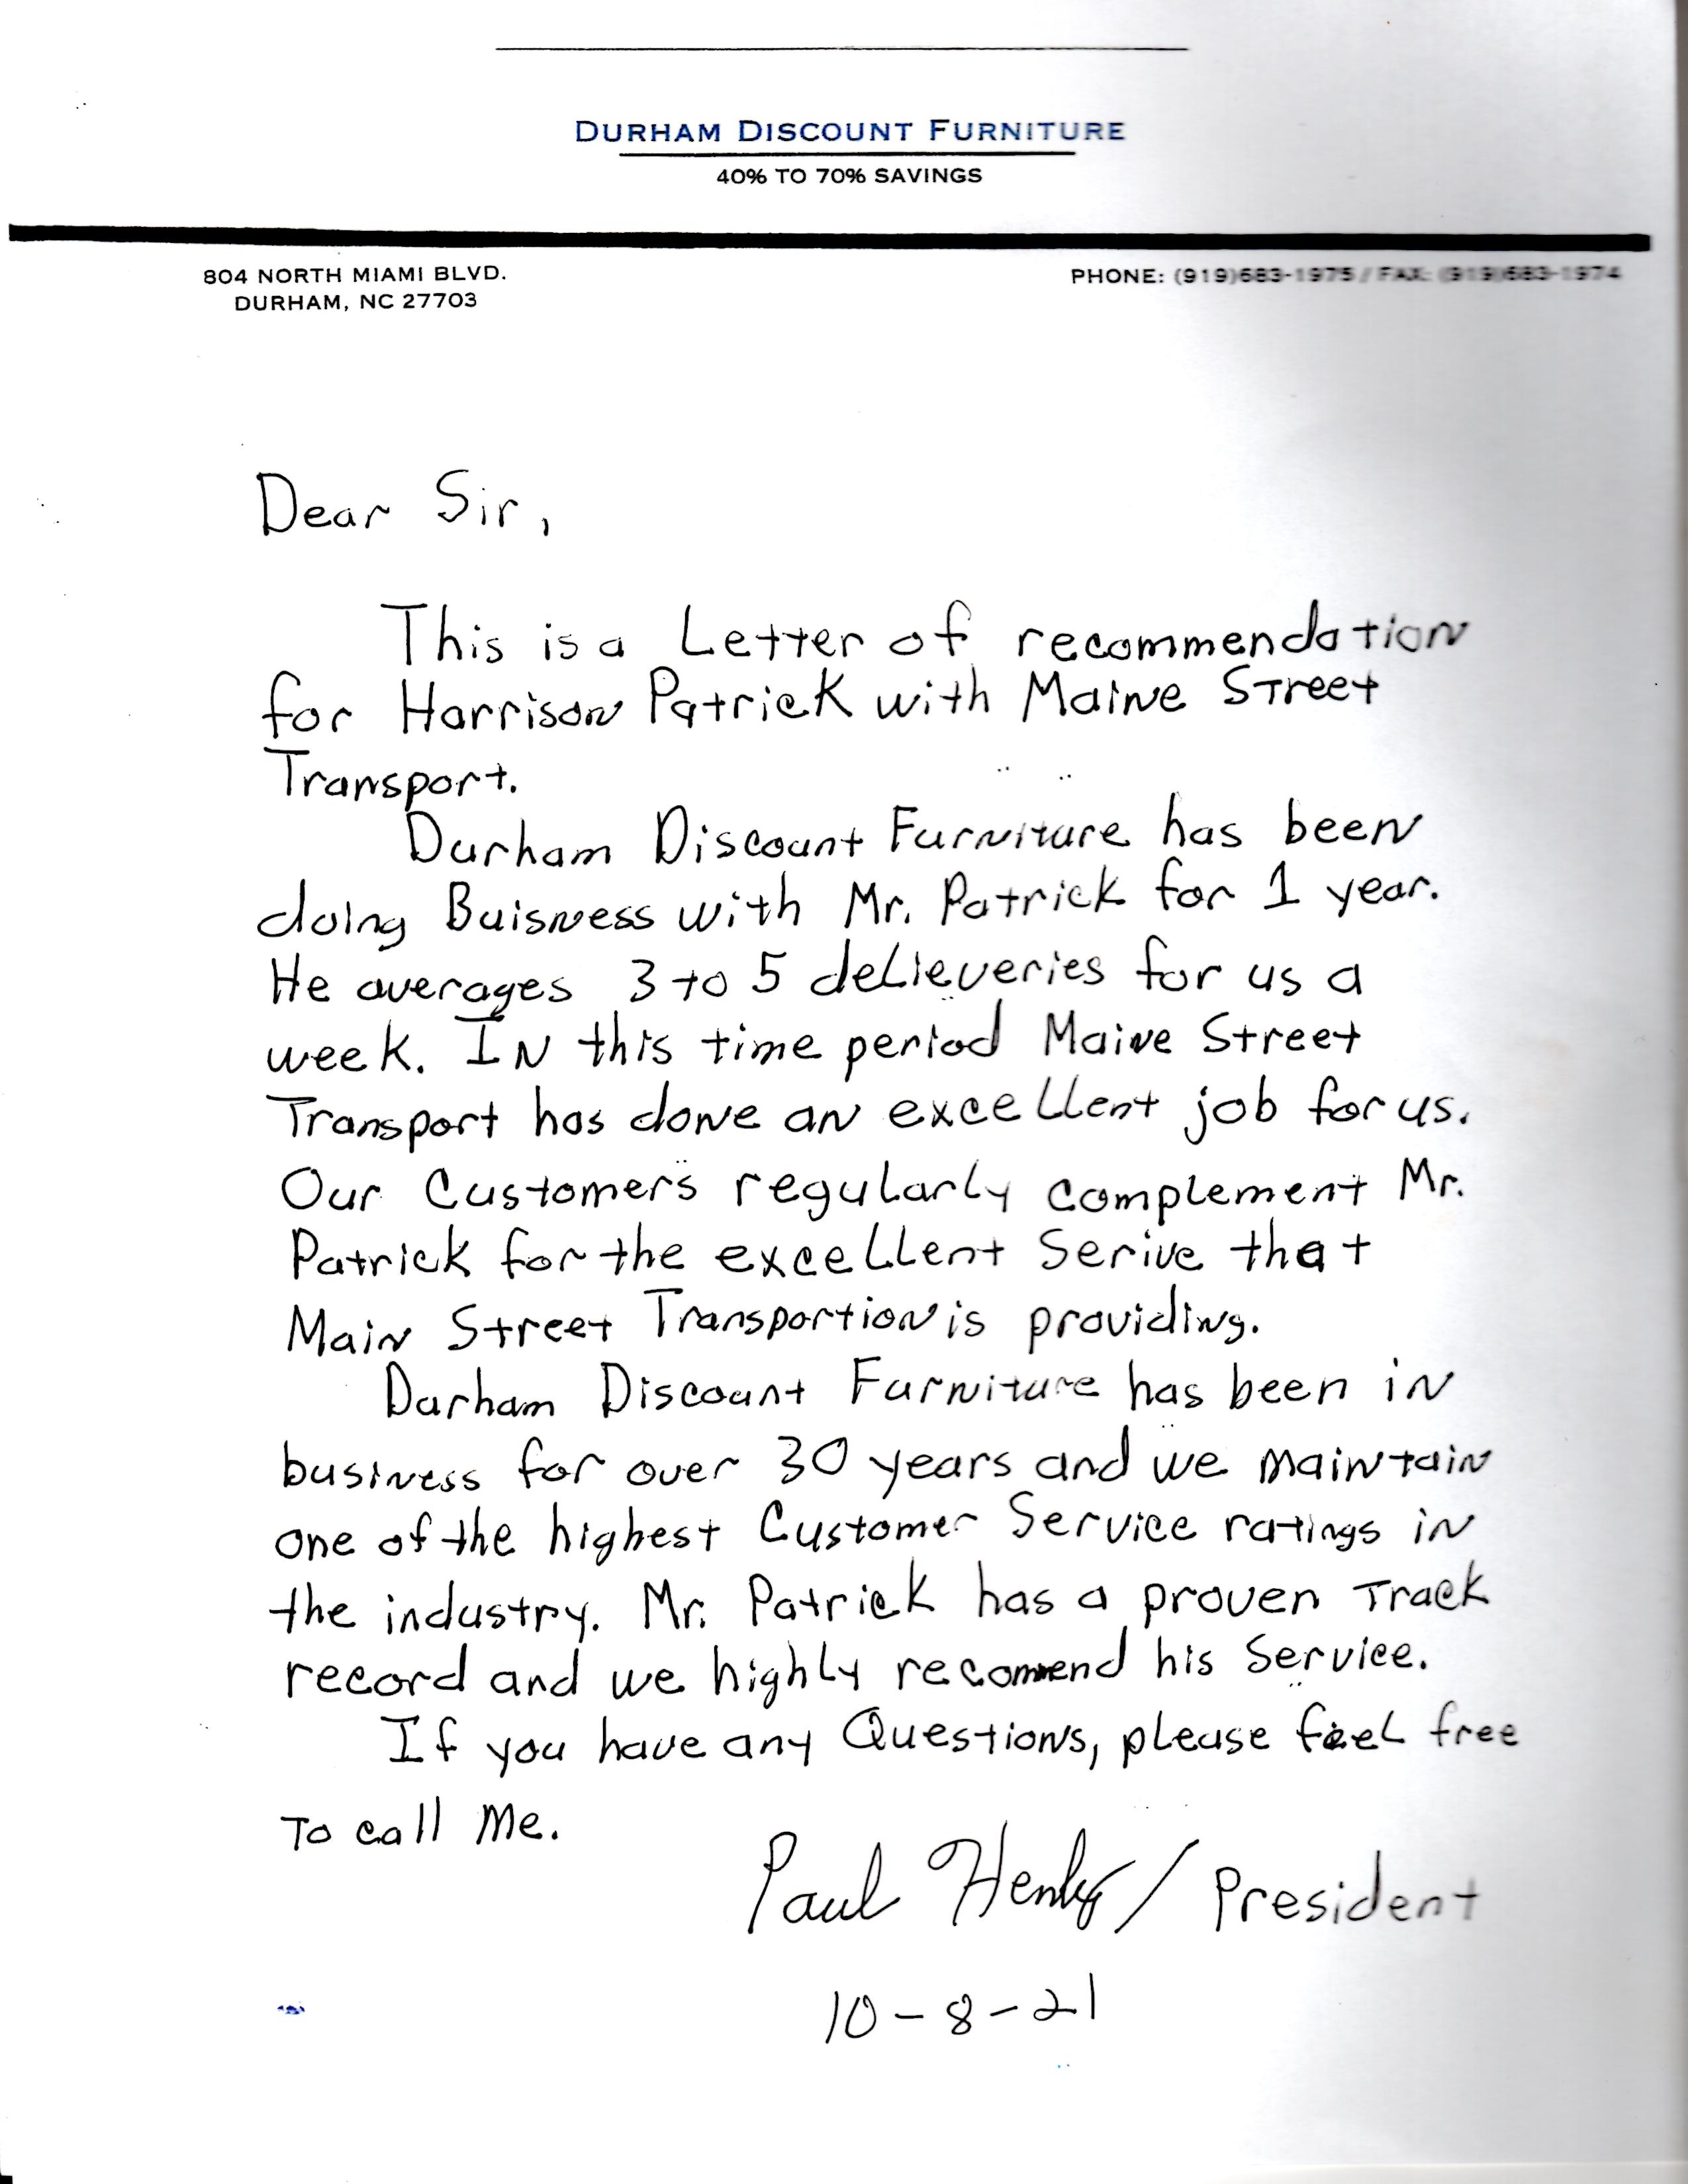 DURHAM DISCOUNT FURNITURE
40% TO 70% SAVINGS
804 NORTH MIAMI BLVD.
DURHAM, NC 27703
PHONE: (919)683-1975 / FAX: (919)683-1974
Dear Sir,
This is a Letter of recommendation
for Harrison Patrick with Maine Street
Transport.
Durham Discount Furniture has been
doing Buisness with Mr. Patrick for 1 year.
He averages 3 to 5 delieveries for us a
week. In this time period Maine Street
Transport has done an excellent job for us.
Our Customers regularly complement Mr.
Patrick for the excellent Serive that
Main Street Transportion is providing.
Durham Discount Furniture has been in
business for over 30 years and we maintain
one of the highest Customer Service ratings in
the industry. Mr. Patrick has a proven Track
record and we highly recommend his Service.
If you have any Questions, please feel free
To call Me.
Paul Henley / President
10-8-21